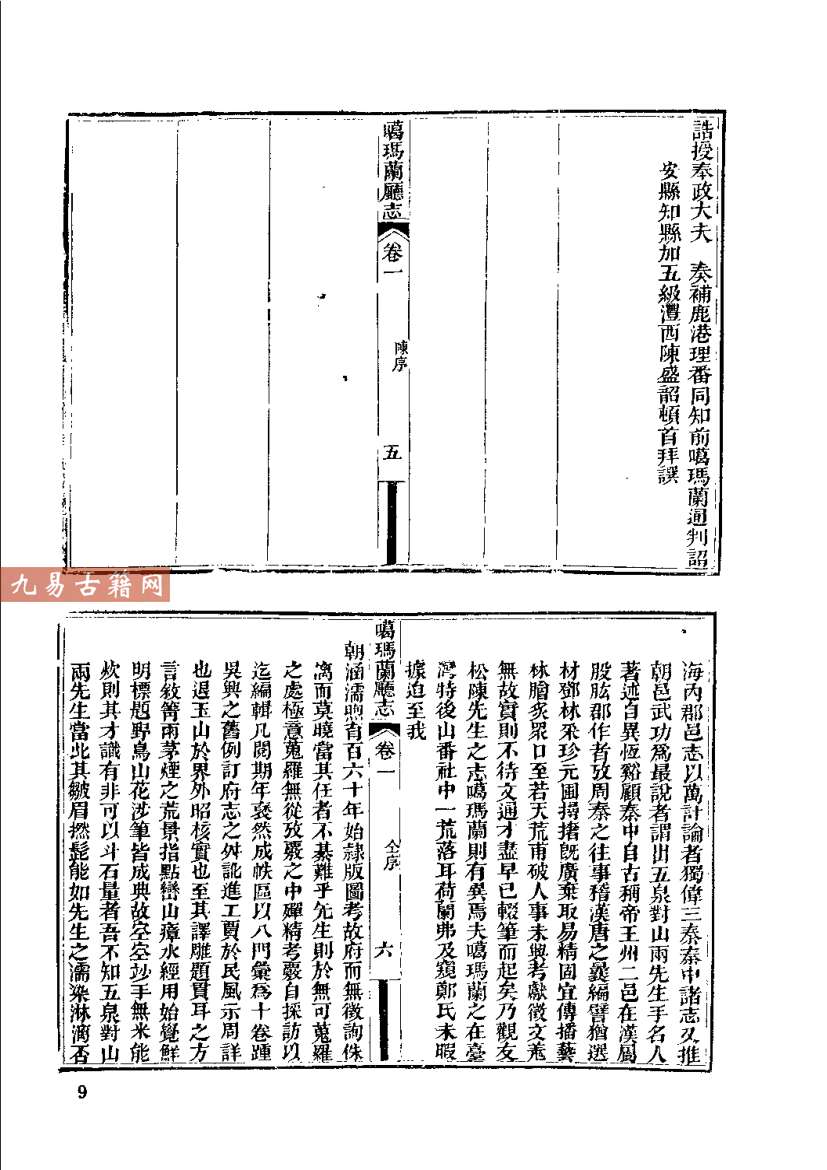 誥授奉政大夫 奏補鹿港理番同知前噶瑪蘭通判詔
安縣知縣加五級澧西陳盛韶頓首拜譔
噶瑪蘭廳志 卷一 陳序 五
九易古籍网
海內郡邑志以萬計論者獨偉三秦秦中諸志又推
朝邑武功為最說者謂出五泉對山兩先生手名人
著述自異恆谿顧秦中自古稱帝王州二邑在漢屬
股肱郡作者攷周秦之往事稽漢唐之叢編譬猶選
材鄧林采珍元圃擣撦既廣棄取易精固宜傳播藝
林膾炙眾口至若天荒甫破人事未興考獻徵文茫
無故實則不待文通才盡早已輟筆而起矣乃觀友
松陳先生之志噶瑪蘭則有異焉夫噶瑪蘭之在臺
灣特後山番社中一荒落耳荷蘭弗及窺鄭氏未暇
據迨至我
噶瑪蘭廳志 卷一 仝序 六
朝涵濡煦育百六十年始隸版圖考故府而無徵詢侏
㒧而莫曉當其任者不綦難乎先生則於無可蒐羅
之處極意蒐羅無從攷覈之中殫精考覈自採訪以
迄編輯凡閱期年裒然成帙區以八門彙為十卷踵
吳興之舊例訂府志之舛訛進工賈於民風示周詳
也退玉山於界外昭核實也至其譯雕題貫耳之方
言敘箐雨茅煙之荒景指點巒山瘴水經用始覺鮮
明標題野鳥山花涉筆皆成典故空空妙手無米能
炊則其才識有非可以斗石量者吾不知五泉對山
兩先生當此其皺眉撚髭能如先生之濡染淋漓否
9